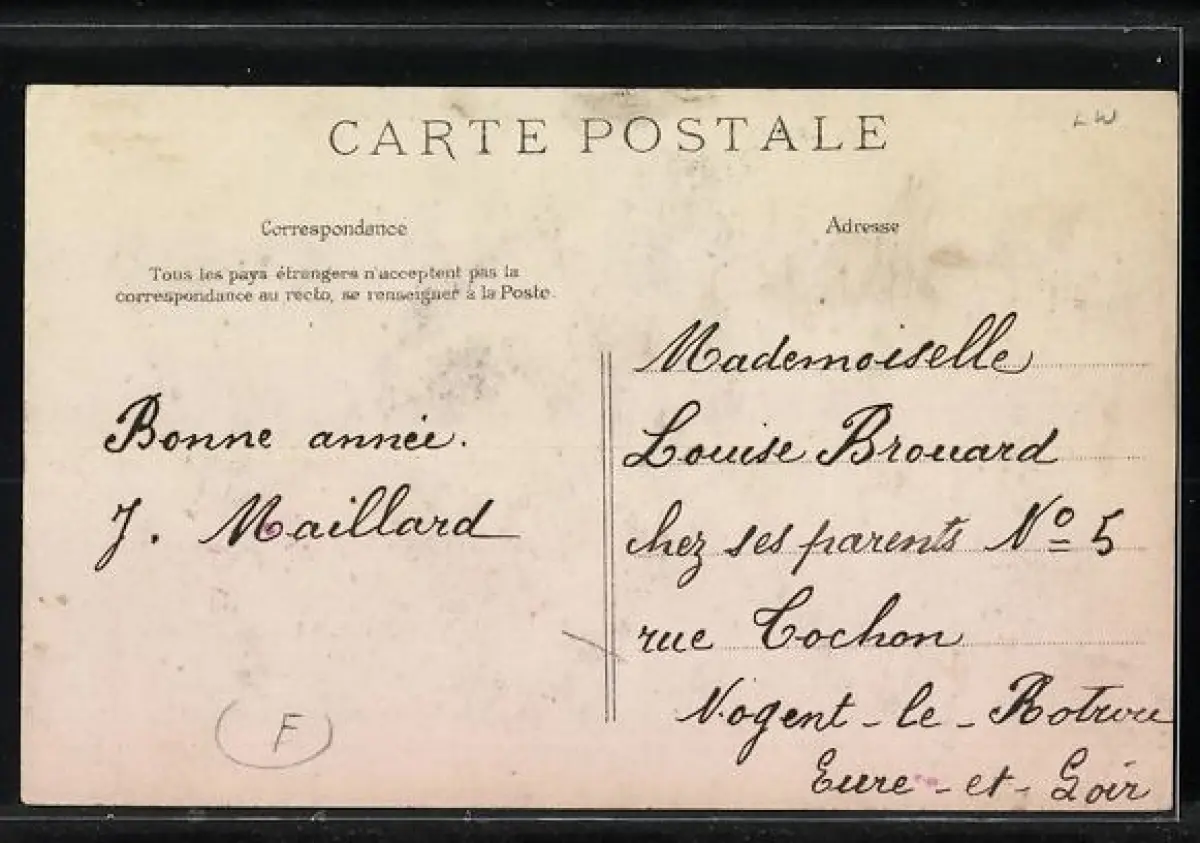 CARTE POSTALE
LW
Correspondance
Tous les pays étrangers n'acceptent pas la
correspondance au recto, se renseigner à la Poste.
Bonne année.
J. Maillard
F
Adresse
Mademoiselle
Louise Brouard
chez ses parents Nº 5
rue Cochon
Nogent-le-Rotrou
Eure-et-Loir